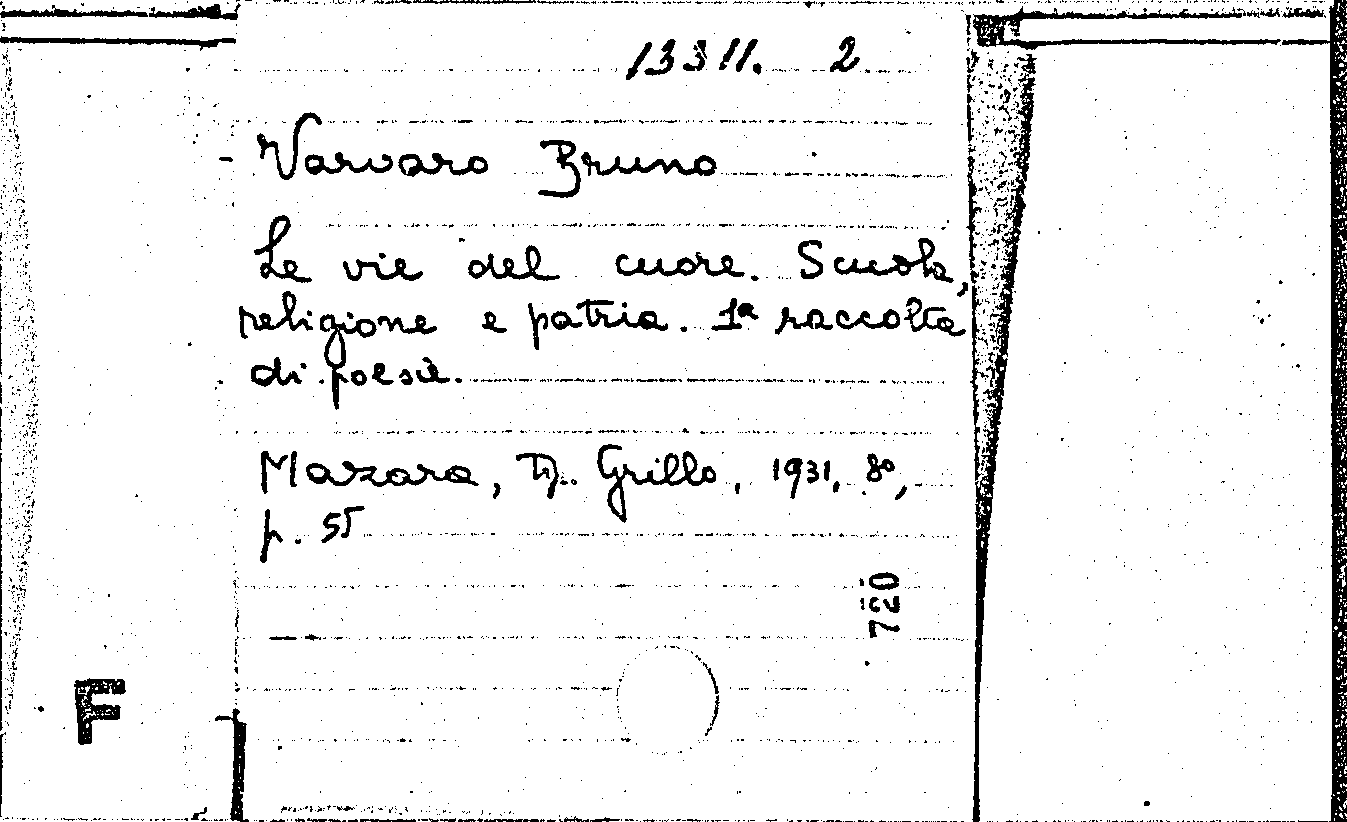 13311. 2
Varvaro Bruno
Le vie del cuore. Scuola,
religione e patria. 1ª raccolta
di poesie.
Mazara, Tip. Grillo, 1931, 8º,
p. 55
720
F